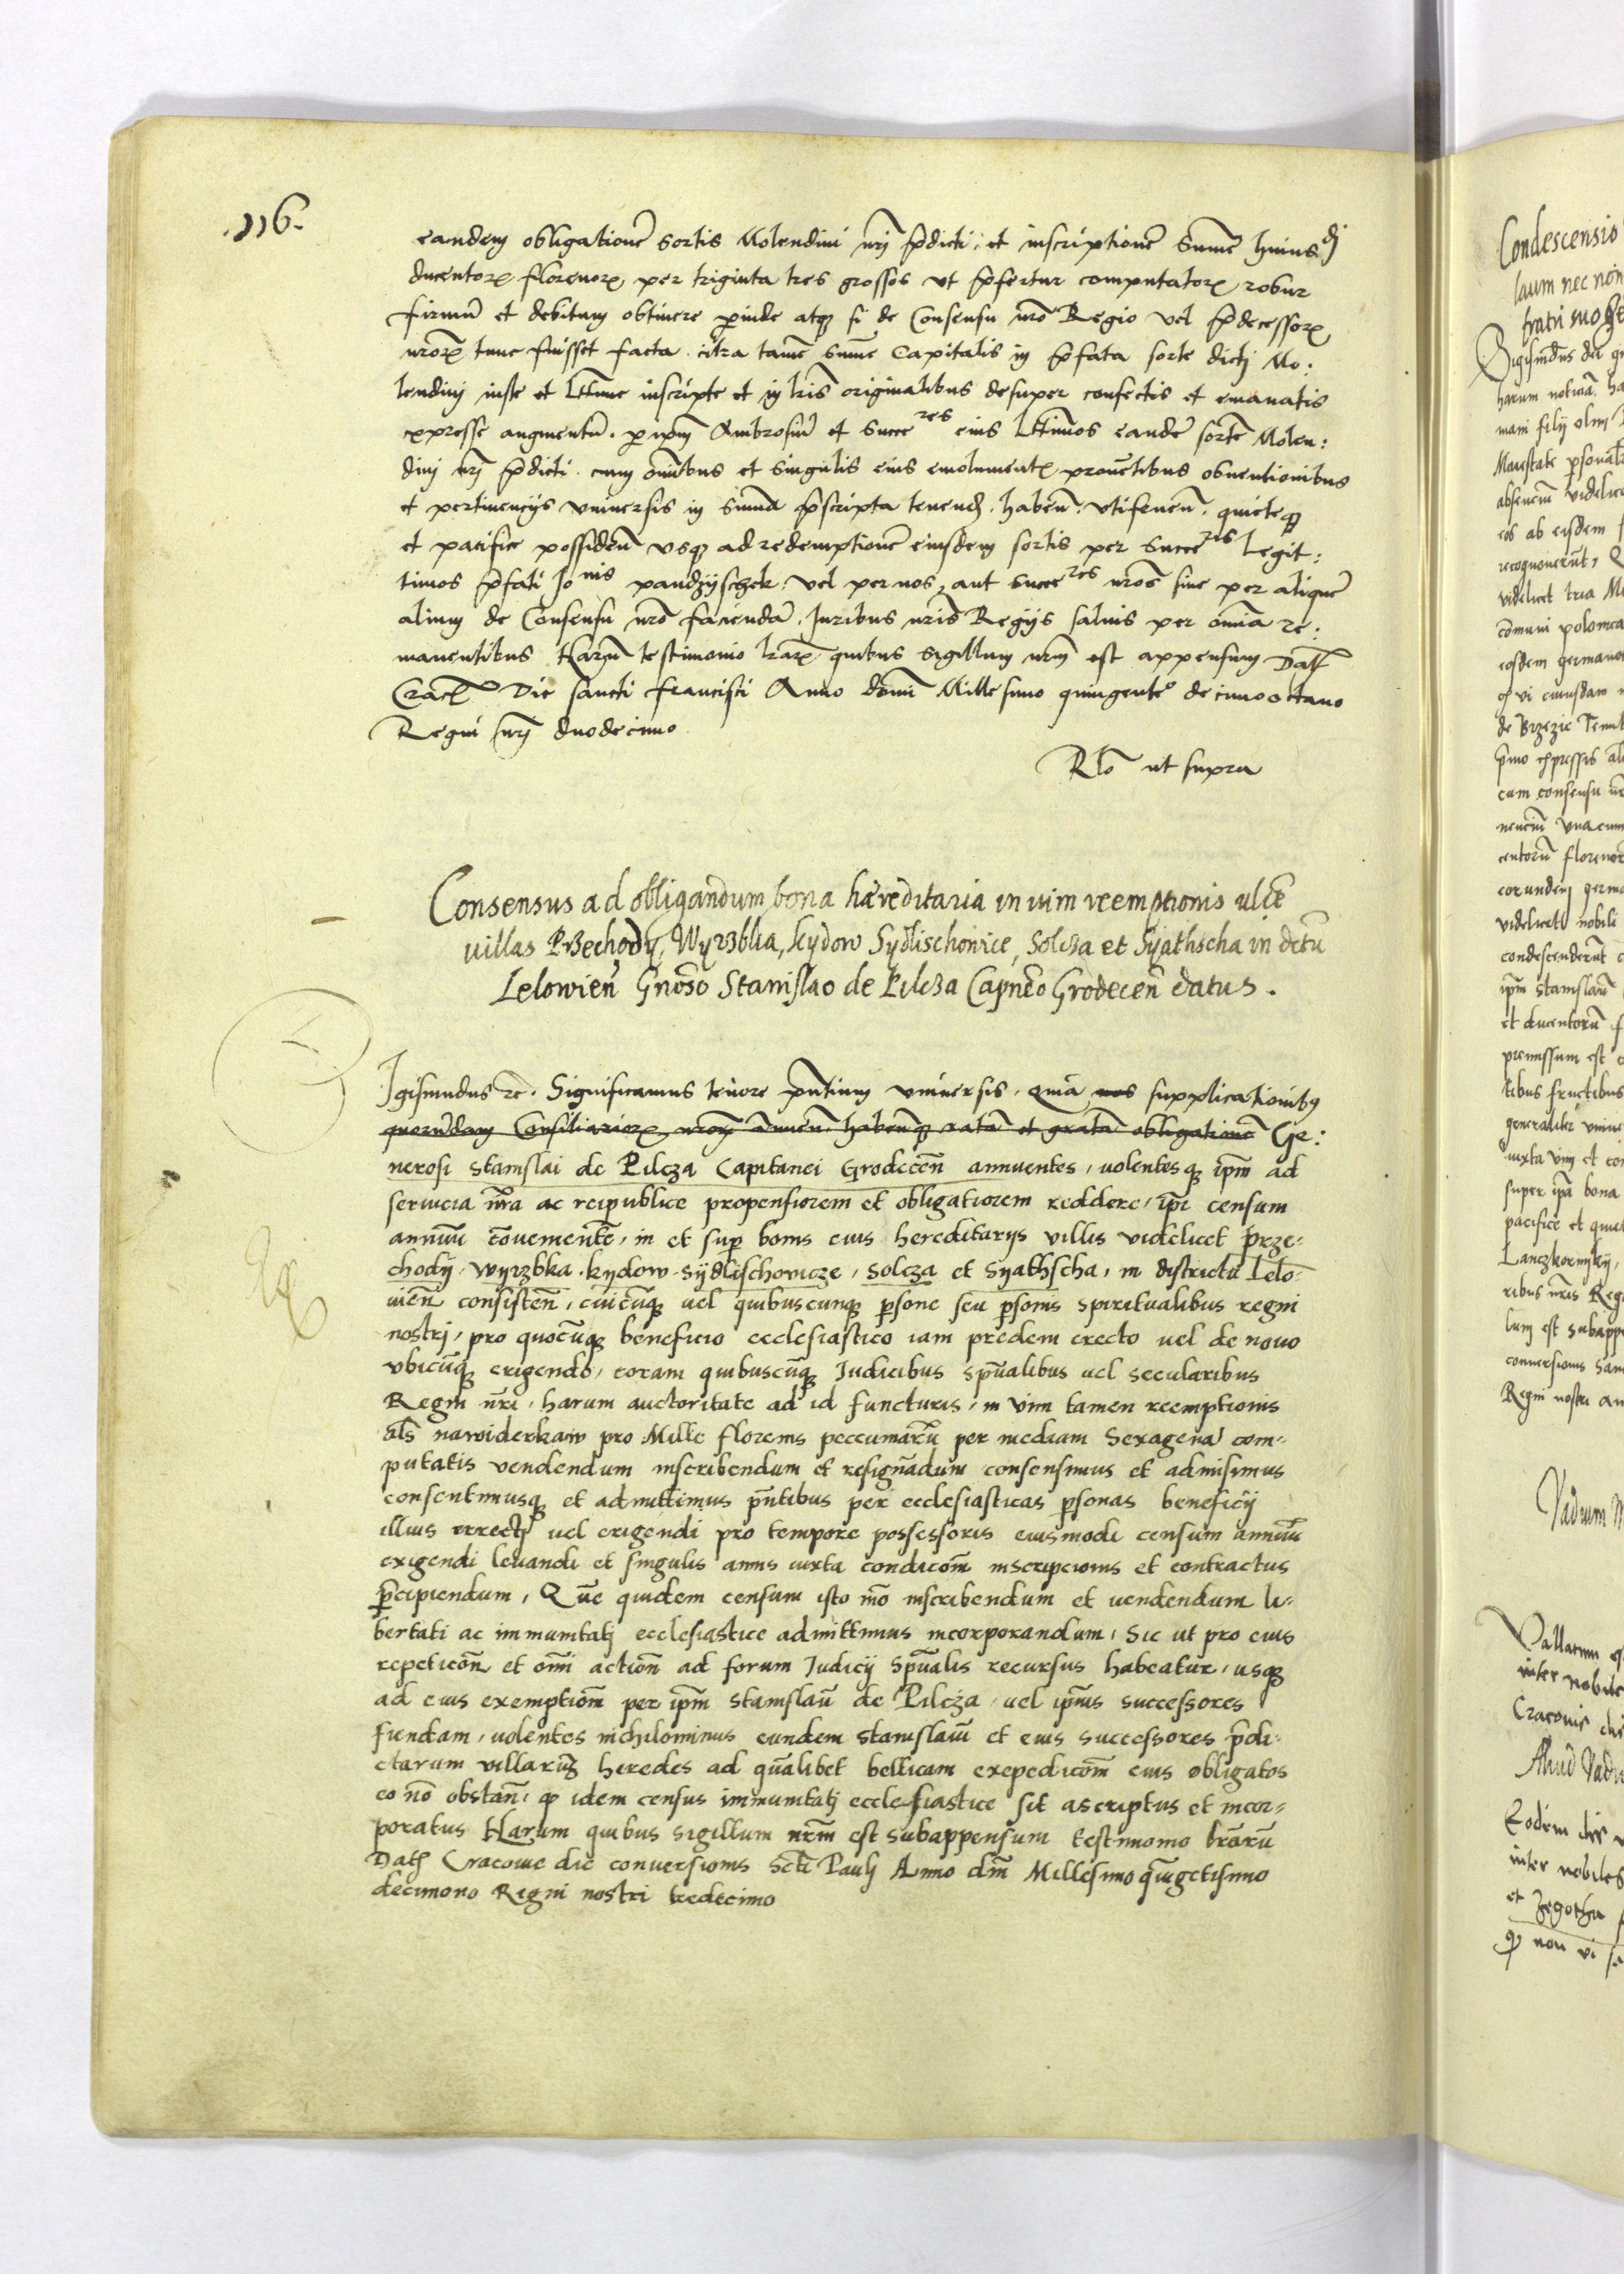 .116.
eandem obligationē sortis Molendini nrj p̄dicti, et inscriptionē Sum̄e huiusdj
ducentorꝫ florenorꝫ per triginta tres grossos vt p̄fertur computatorꝫ robur
firmū et debitum obtinere p̱inde atqꝫ si de Consensu nrō Regio vel p̄decessorꝫ
nrorꝫ tunc fuisset facta. citra tamē Sum̄e Capitalis in p̄fata sorte dictj Mo:
lendinj iuste et Lttime inscripte et in lrīs originalibus desuper confectis et emanatis
expresse augmentū. p̱ ipm̄ Ambrosiū et Succeres eius Lttimos eandē sortē Molen:
dinj nrj p̄dicti. cum om̄ibus et singulis eius emolumentꝫ prouētibus obuentionibus
et pertinencijs vniuersis in Summa p̄scripta tenendꝫ. habenn̄. vtifruenn̄. quieteqꝫ
et pacifice possidenn̄ vsqꝫ ad redemptionē eiusdem sortis per Succeres Legit:
timos p̄fati Jonis pandzijschek. vel per nos, aut succeres nros̄ siue per aliquē
alium de Consensu nrō faciendā. Juribus nris̄ Regijs saluis per om̄ia re:
manentibus Harū testimonio lrarꝫ quibus sigillum nrm̄ est appensum Datꝫ
Cracꝫ Die sancti francisci Anno domī Millesimo quingentēo decimooctauo
Regni nrj duodecimo
Rlō ut supra
Consensus ad obligandum bona hæreditaria in uim reemptionis ulȼe
uillas Przechody, Wyrzbka, kydow Sydlischouice, Solcza et Syathscha in detu
Lelowien̄ Gnōso Stanislao de Pilcza Capnēo Grodecen̄ datus.
Igismundus ꝛc. Significamus tenore pn̄tium vniuersis. Quia nos supplicationibꝰ
quorūdam Consiliariorꝫ nrorꝫ annuen̄ habenqꝫ ratā et gratā obligationē Ge:
nerosi Stanislai de Pilcza Capitanei Grodecen̄ annuentes, uolentesqꝫ ipm̄ ad
seruicia nrā ac reipublice propensiorem et obligatiorem reddere, ipi̅ censum
annuū cōuenientē, in et sup̱ bonis eius hereditarijs villis videlicet prze-
chodij. wyrzbka. kydow. Sydlischovicze, Solcza et Syathscha, in districtu Lelo-
uien̄ consisten̄, cuicūqꝫ uel quibuscunqꝫ p̱sone seu p̱sonis spiritualibus regni
nostrj, pro quocūqꝫ beneficio ecclesiastico iam predem erecto uel de nouo
vbicūqꝫ erigendo, coram quibuscūqꝫ Judicibus sp̄ualibus uel secularibus
Regni nr̄i, harum auctoritate ad id functuris, in vim tamen reemptionis
al̄s nawiderkaw pro Mille florenis peccuniarū per mediam Sexagena com-
putatis vendendum inscribendum et resignādum consensimus et admisimus
consentimusqꝫ et admittimus pn̄tibus per ecclesiasticas p̱sonas beneficij
illius errectj uel erigendi pro tempore possessoris eiusmodi censum annuū
exigendi leuandi et singulis annis iuxta condicōm̄ inscripcionis et contractus
p̱cipiendum, Quē quidem censum isto mō inscribendum et uendendum li-
bertati ac immunitatj ecclesiastice admittimus incorporandum, Sic ut pro eius
repeticōn̄ et om̄i actiōn̄ ad forum Judicij Sp̄ualis recursus habeatur, usqꝫ
ad eius exemptiōm̄ per ipm̄ Stanislaū de Pilcza, uel ipsius successores
fiendam, uolentes nichilominus eundem Stanislaū et eius successores p̄di-
ctarum villarūꝫ heredes ad quālibet bellicam exepedicōm̄ eius obligatos
eo nō obstan̄. ꝙ idem census immunitatj ecclesiastice sit ascriptus et incor-
poratus Harum quibus sigillum nrm̄ est subappensum testimonio lrārū
Datꝫ Cracouie die conuersionis Sctī Paulj Anno dnī Millesimo qūigetisimo
decimono Regni nostri tredecimo
Condescensio
laum nec non
fratri suo
Sigismūdus dei
harum noticiā
mani filij olim
Maiestate p̱sonal
absenciū videlicet
eos ab eisdem
recognouerūt,
videlicet tria
cōmuni
eosdem germanos
ꝙ vi cuiusdam
de Brzezie
p̄mo expressis
cum consensu
nenciū vna cum
centorū florenor
eorundem germa
videlicet nobili
condescenderūt
ipm̄ Stanislaū
et ducentorū
premissum est
tibus fructibus
generaliter vniue
iuxta vim et con
super ipā bona
pacifice et quie
Lanczkoronsky,
ribus nris̄ Reg
lum est subappe
conuersionis San
Regni nostri an
Vadium
Vallatum
inter nobile
Cracouie die
Aliud Vadiu
Eodem die
inter nobiles
et Zegotha
ꝙ non vi